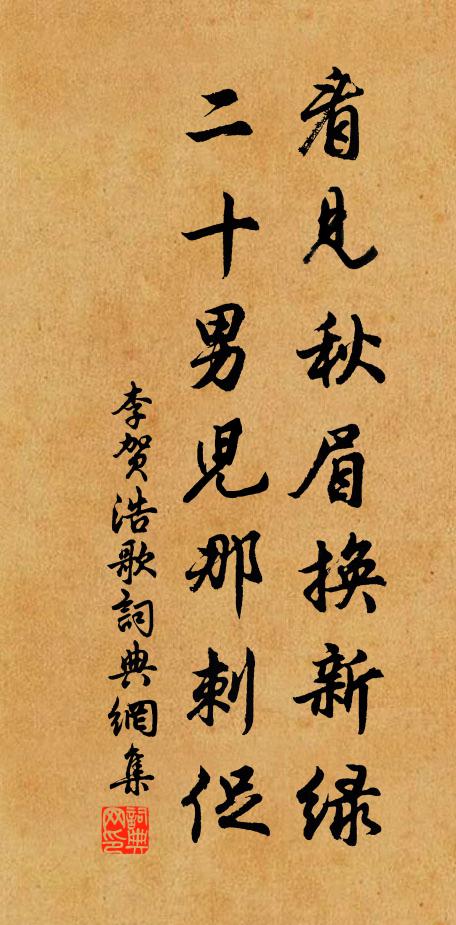 看見秋眉換新緑
二十男兒那刺促
李賀浩歌詞典網集
詞典網印